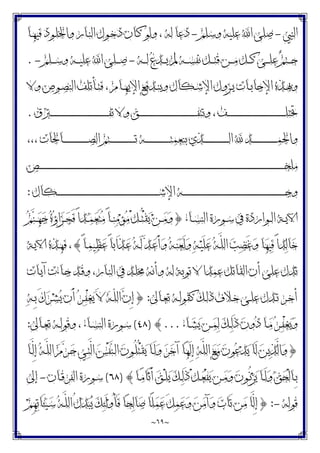 النبي - صلى الله عليه وسلم - دعا له ، ولو كان دخول النار والخلود فيها
جزاء كل من قتل نفسه لم يدع له - صلى الله عليه وسلم - .
وبهذه الإجابات يزول الإشكال ويندفع الإيهام ، فتأتلف النصوص ولا
تختلف ، وتتفق ولا تفترق .
والحمد لله الذي بنعمته تتم الصالحات ،،،
ملخص
وجه الإشكال :
الآية الواردة في سورة النساء : ﴿ وَمَنْ يَقْتُلْ مُؤْمِنًا مُتَعَمِّدًا فَجَزَاؤُهُ جَهَنَّمُ
خَالِدًا فِيهَا وَغَضِبَ اللَّهُ عَلَيْهِ وَلَعَنَهُ وَأَعَدَّ لَهُ عَذَابًا عَظِيمًا ﴾ ، فهذه الآية
تدل على أن القاتل عمدًا لا توبة له وأنه مخلد في النار ، وقد جاءت آيات
أخر تدل على خلاف ذلك كقوله تعالى : ﴿ إِنَّ اللَّهَ لَا يَغْفِرُ أَنْ يُشْرَكَ بِهِ
وَيَغْفِرُ مَا دُونَ ذَلِكَ لِمَنْ يَشَاءُ ... ﴾ (٤٨) سورة النساء ، وقوله تعالى :
﴿ وَالَّذِينَ لَا يَدْعُونَ مَعَ اللَّهِ إِلَهًا آخَرَ وَلَا يَقْتُلُونَ النَّفْسَ الَّتِي حَرَّمَ اللَّهُ إِلَّا
بِالْحَقِّ وَلَا يَزْنُونَ وَمَنْ يَفْعَلْ ذَلِكَ يَلْقَ أَثَامًا ﴾ (٦٨) سورة الفرقان - إلى
قوله - : ﴿ إِلَّا مَنْ تَابَ وَآمَنَ وَعَمِلَ عَمَلًا صَالِحًا فَأُولَئِكَ يُبَدِّلُ اللَّهُ سَيِّئَاتِهِمْ
~٦٩~